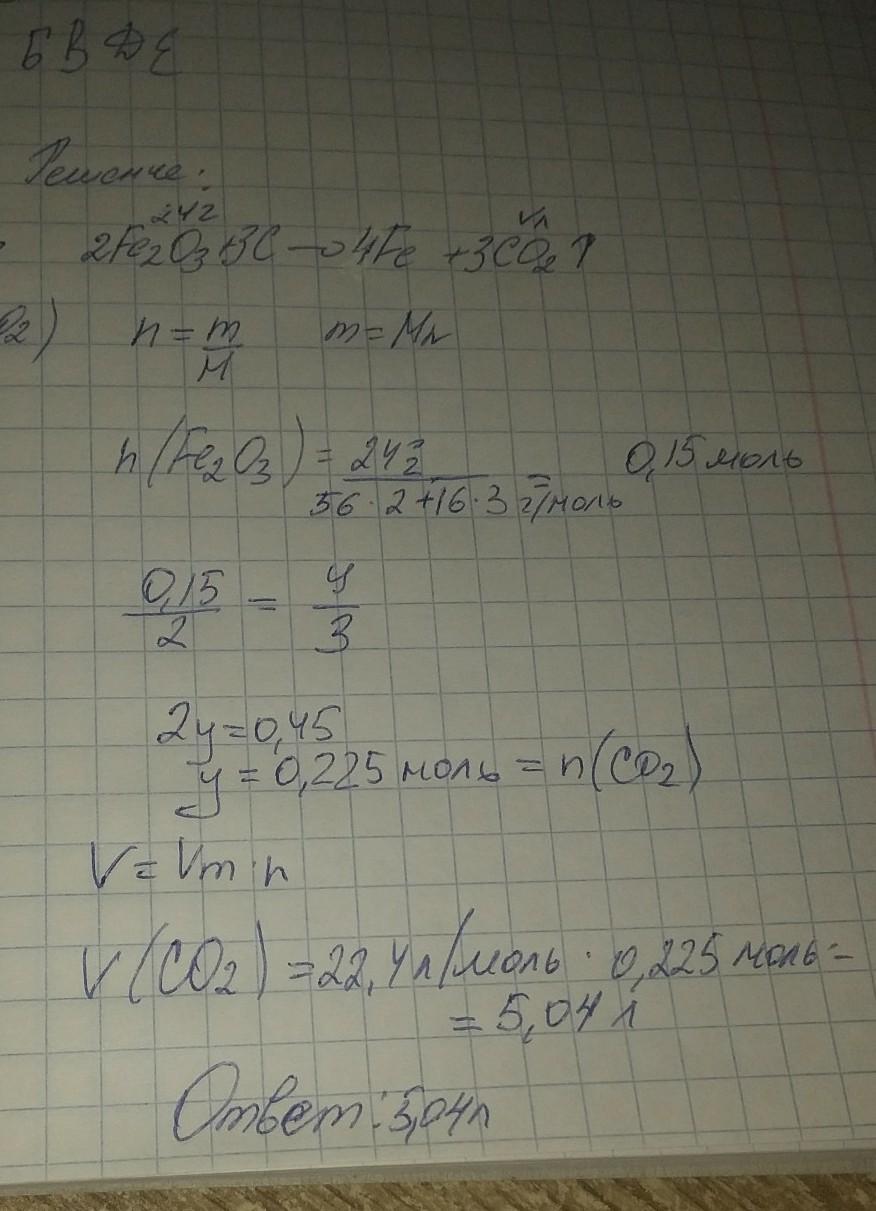 БВДЕ
Решение:
24г Vл
2Fe₂O₃+3C→4Fe +3CO₂↑
O₂) n=m/M m=Mn
n(Fe₂O₃)=24г/56·2+16·3 г/моль= 0,15 моль
0,15/2 = y/3
2y=0,45
y=0,225 моль = n(CO₂)
V=Vm·n
V(CO₂)=22,4л/моль · 0,225 моль=
=5,04л
Ответ: 5,04л